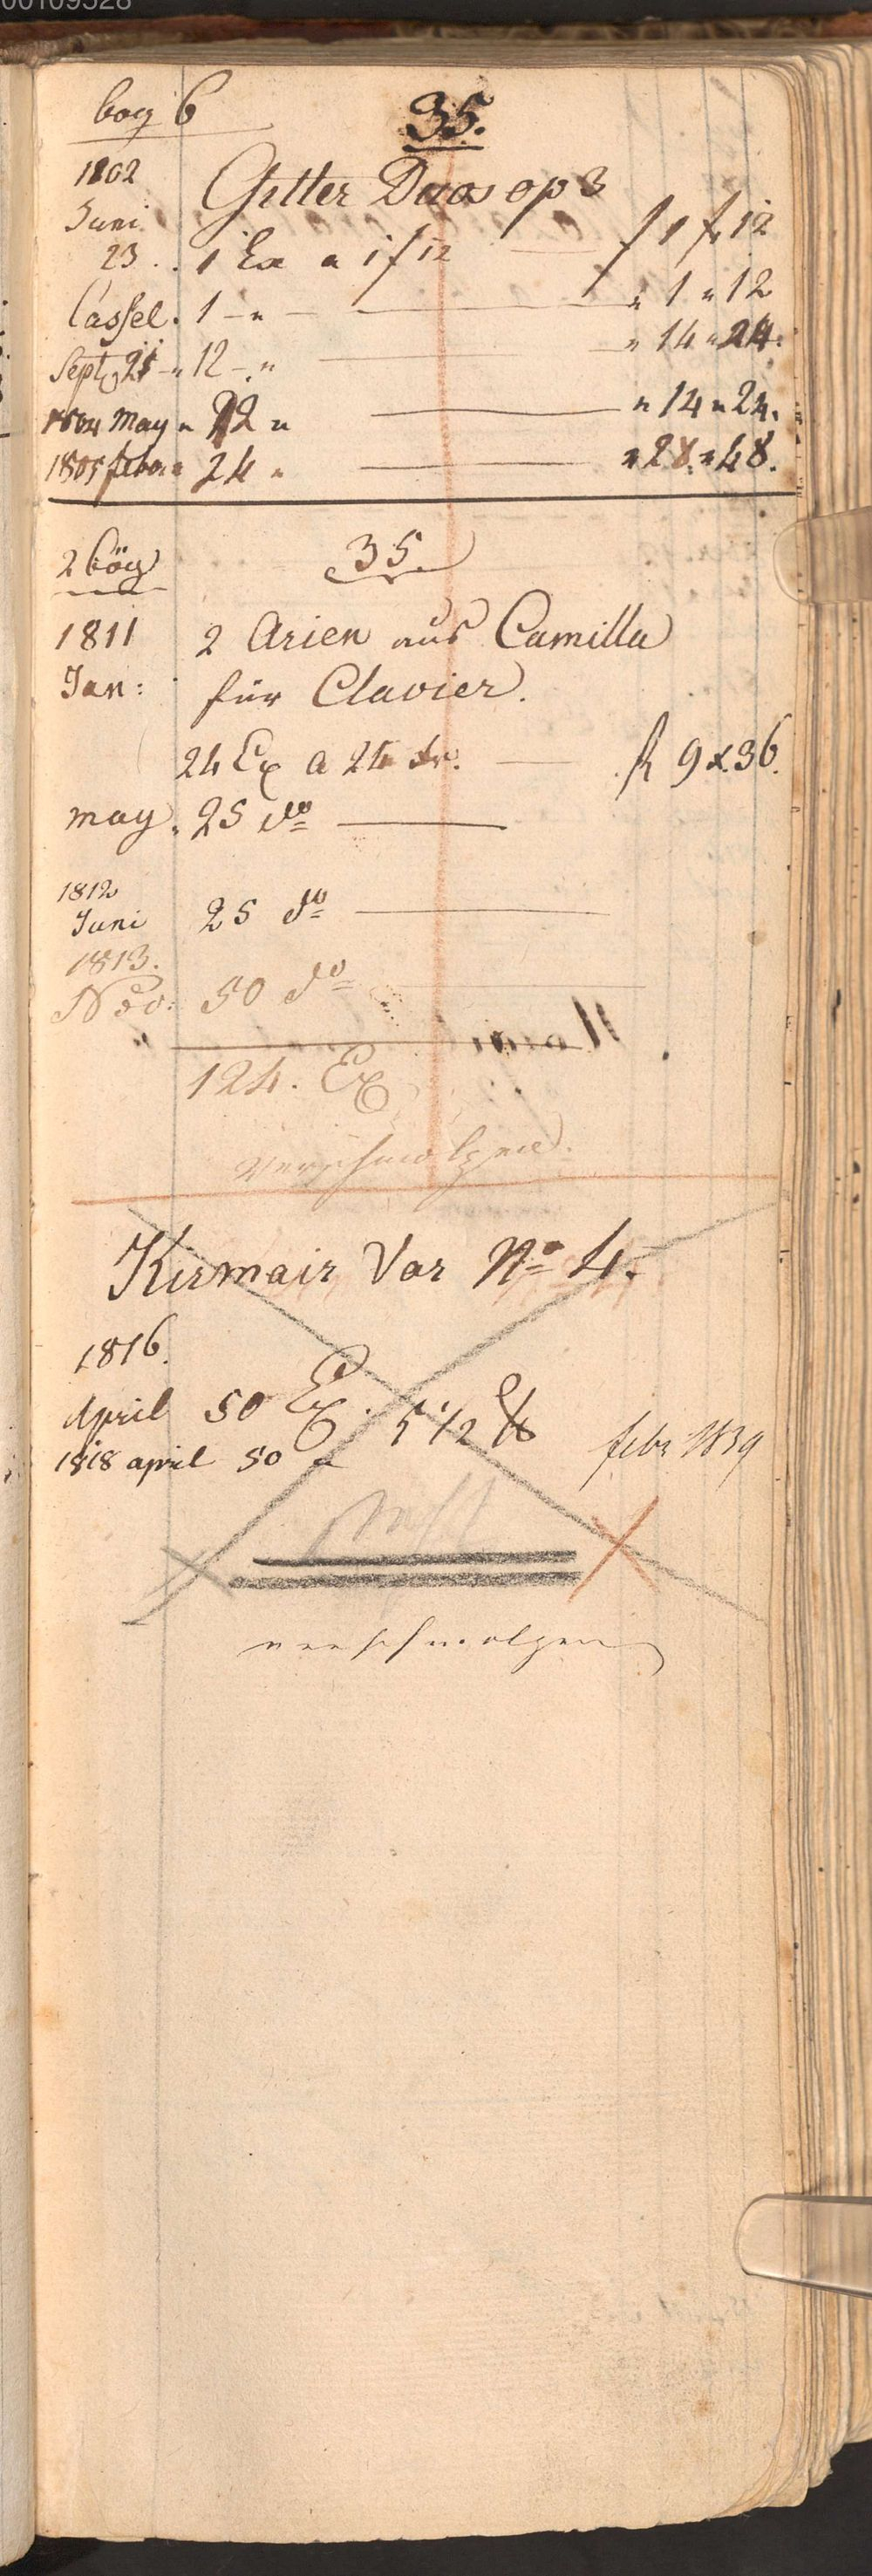 00109528
bog 6
35.
1802 Gitter Duos op 3
Juni
23 .. 1 Ex a 1 f 12 — f 1 x 12
Cassel. 1 — " — " 1 " 12
Sept 21 " 12 — " — " 14 " 24.
1804 May " 12 " — " 14 " 24.
1805 febr " 24 " — " 28 " 48.
2 bög 35
1811 2 Arien aus Camilla
Jan: für Clavier.
24 Ex a 24 xr. — fl 9 x. 36.
may. 25 do —
1812
Juni 25 do —
1813.
Nov: 50 do —
124. Ex
Verschmolzen.
Kirmair Var No 4.
1816.
April 50 Ex. 5 1/2 lb
1818 april 50 " febr 1839
verschmolzen